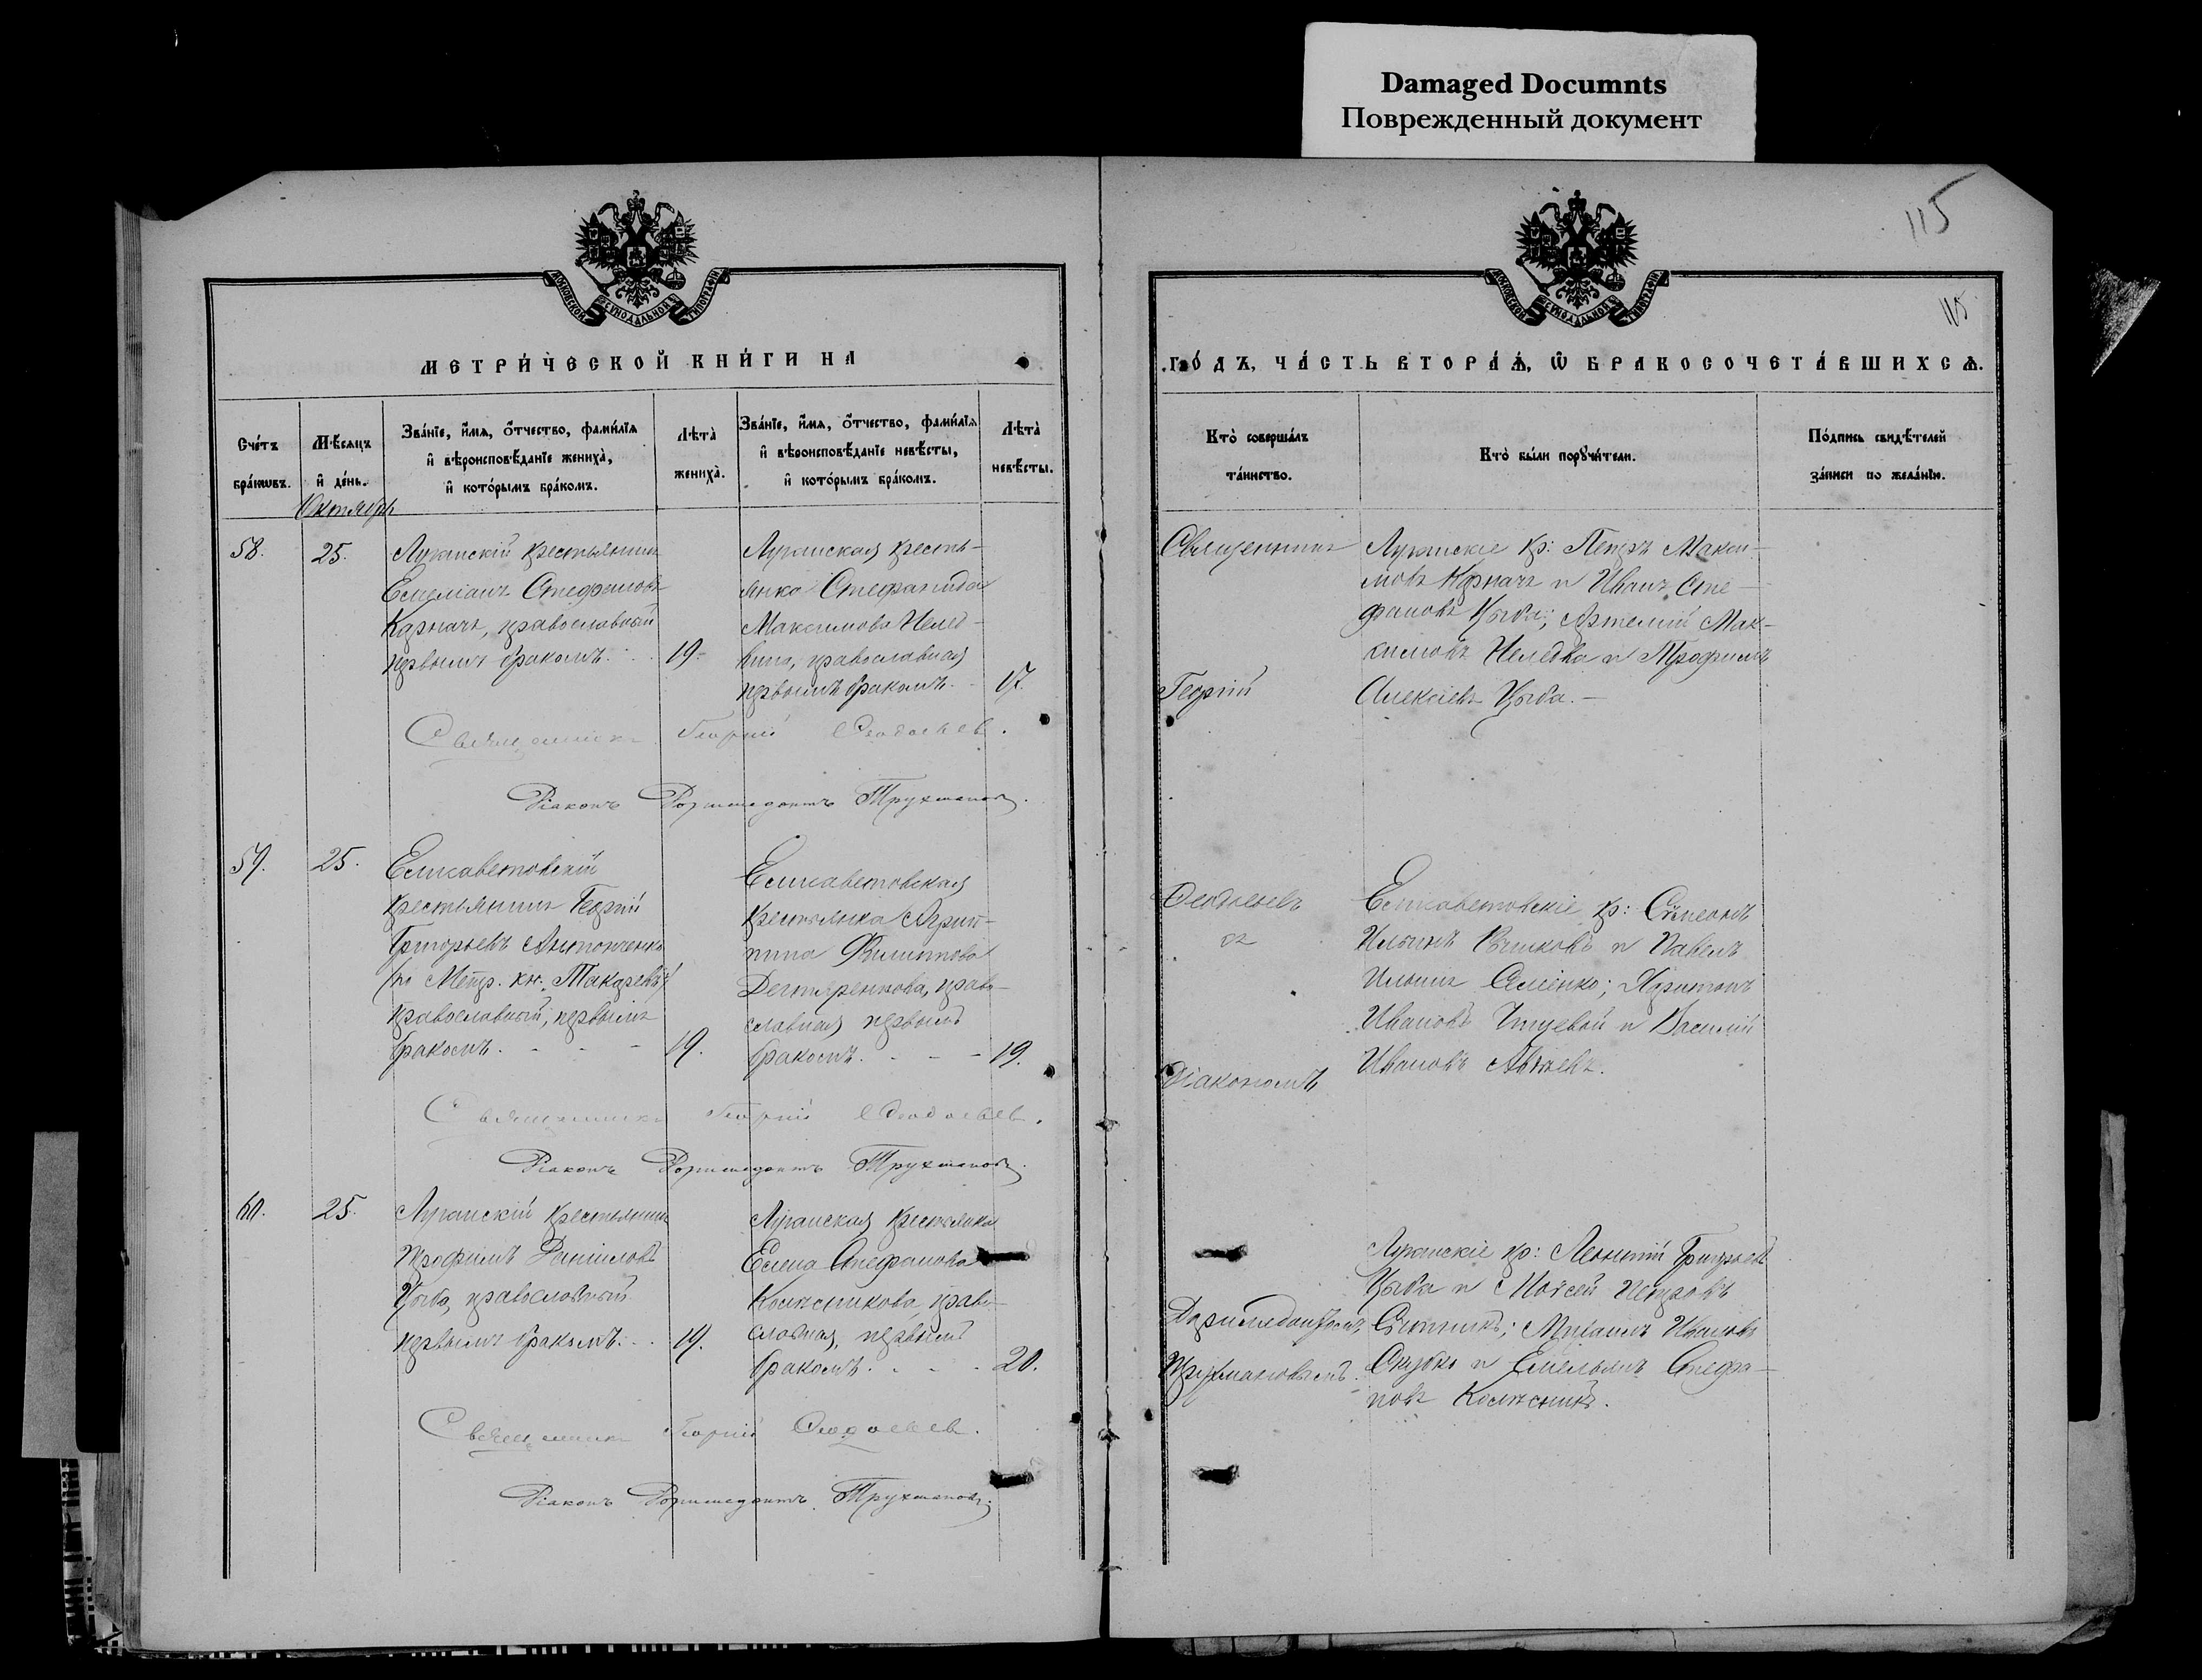 Damaged Documnts
Поврежденный документ
115
115
МЕТРИ́ЧЕСКОЙ КНИ́ГИ НА
ГО́ДЪ, ЧА́СТЬ ВТОРА́Ѧ, Ѽ БРАКОСОЧЕТА́ВШИХСѦ.
Сче́тъ бра́кѡвъ.
Мѣ́сяцъ и де́нь.
Зва́нїе, и́мѧ, о́тчество, фами́лїя и вѣроисповѣ́данїе жениха̀, и кото́рымъ бра́комъ.
Лѣта̀ жениха̀.
Зва́нїе, и́мѧ, о́тчество, фами́лїя и вѣроисповѣ́данїе невѣ́сты, и кото́рымъ бра́комъ.
Лѣта̀ невѣ́сты.
Кто̀ соверша́лъ та́инство.
Кто̀ бы́ли порꙋчи́тели.
По́дпись свидѣ́телей за́писи по жела́нїю.
Октябрь
58.
25.
Луганскій крестьянинъ
Емеліанъ Стефановъ
Карначъ, православный
первымъ бракомъ.
19.
Луганская кресть-
янка Стефанида
Максимова
православная
первымъ бракомъ.
17.
Священникъ
Георгій
Луганскіе кр: Петръ Макси-
мовъ Карначъ и Иванъ Сте-
фановъ Цыба; Артемій Мак-
симовъ и Трофимъ
Алексіевъ Цыба.
Священникъ Георгій Ѳеодосьев.
Діаконъ Доримедонтъ Трухмановъ.
59.
25.
Елисаветовскій
крестьянинъ Георгій
Григорьевъ Антонченко
(по Метр. кн.
православный, первымъ
бракомъ.
19.
Елисаветовская
крестьянка Агрип-
пина Филиппова
Дегтяренкова, право-
славная первымъ
бракомъ.
19.
Ѳеодосьевъ
съ
Діакономъ
Елисаветовскіе кр: Сѵмеонъ
Ильинъ и Павелъ
Ильинъ Харитонъ
Ивановъ и Василій
Ивановъ
Священникъ Георгій Ѳеодосьев.
Діаконъ Доримедонтъ Трухмановъ.
60.
25.
Луганскій крестьянинъ
Трофимъ Даниловъ
Цыба, православный
первымъ бракомъ.
19.
Луганская крестьянка
Елена Стефанова
Колесникова, право-
славная, первымъ
бракомъ.
20.
Доримедонтомъ
Трухмановымъ.
Луганскіе кр: Леонтій Григорьевъ
Цыба и Моѵсей Петровъ
Михаилъ Ивановъ
и Емельянъ Стефа-
новъ Колесникъ.
Священникъ Георгій Ѳеодосьев.
Діаконъ Доримедонтъ Трухмановъ.